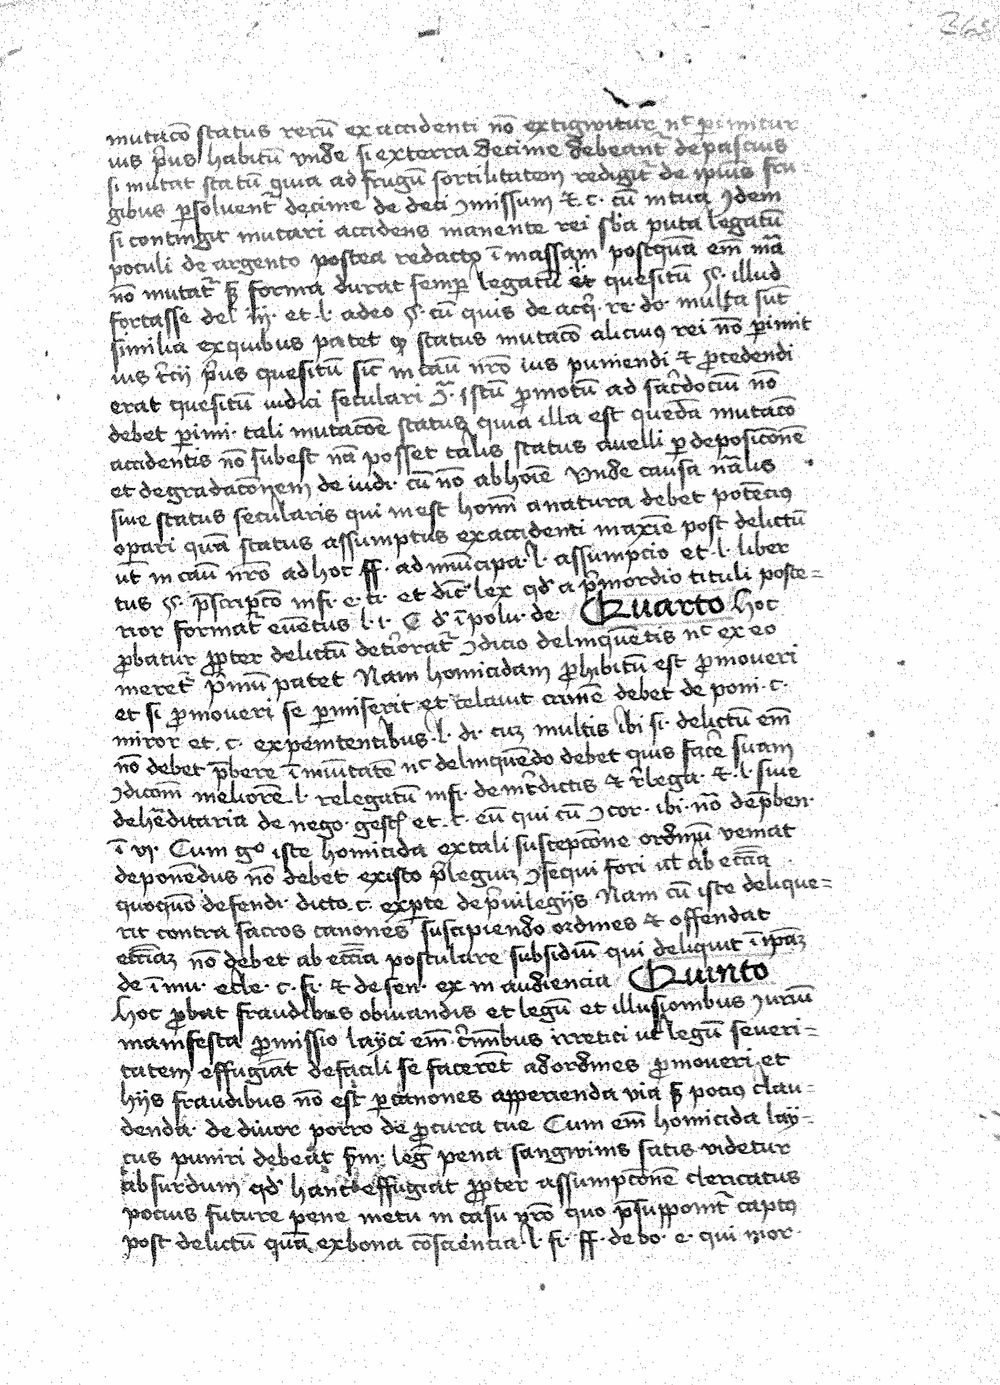 mutacō status rerū ex accidenti nō extigwitur nᶜ perimitur
ius p̄us habitū vnde si ex terra decime debeant de pascius
si mutat statū quia ad frugū fortilitatem redigit̄ de ipius fru-
gibus ꝑsoluent̄ decime de deci ꝯmissum ⁊ c. cū in tua Idem
si contingit mutari accidens manente rei sb̄a puta legatū
poculi de argento postea redacto ī massam postquā em̄ mā
nō mutat̄ sꝫ forma durat semꝑ legatū et quesitū §. illud
fortasse del iij. et. l. adeo §. cū quis de acq̄. re. do. multa sūt
similia ex quibus patet ꝙ status mutacō alicuiꝯ rei nō ꝑimit
ius t̄cij p̄us quesitū sic̄ in caū nr̄o ius puniendi ⁊ ꝓcedendi
erat quesitū iudici seculari Istū ꝓmotū ad sac̄dociū nō
debet ꝑimi. tali mutacōe status quia illa est queda mutacō
accidentis nō subest nā posset talis status auelli ꝑ deposicōnē
et degradacōnem de iudi. cū nō ab hoīe Vnde causa nālis
siue status secularis qui inest homī a natura debet potēciꝯ
oꝑari quā status assumptus ex accidenti maxīe post delictū
ut̄ in caū nr̄o ad hoc ff. ad mūicipa. l. assumpcio et. l. liber
tus §. p̄scripcō infi. e. ti. et dic̄. lex qd̄ a p̄mordio tituli poste=
rior format̄ euētus l. i. C d̄ īpolu. de. Quarto hoc
ꝓbatur ꝓpter delictū det̄iorat̄ ꝯdicio delinquētis nᶜ ex eo
meret̄ p̄miū patet Nam homicidam ꝓhibitū est ꝓmoueri
et si ꝓmoueri se ꝑmiserit et celauit crimē debet deponi. c.
miror et. c. ex penitentibus. l. di. cuꝫ multis ibi si. delictū em̄
nō debet p̄bere ī muitatē nᶜ delinquēdo debet quis facē suam
ꝯdicōm meliorē. l. relegatū infi. de int̄dictis ⁊ r̄lega. ⁊. l. siue
hēditaria de nego. gest̄ et. c. eū qui cū ꝯcor. ibi. nō de p̄ben.
ī vj. Cum gᵒ iste homicida ex tali suscepcōne ordinū veniat
deponēdus nō debet ex isto p̄legiuꝫ ꝯsequi fori ut̄ ab ecc̄ia
quoquō defendi. dicto. c. exꝑte de p̄uilegijs Nam cū iste delique=
rit contra sacros canones suscipiendo ordines ⁊ offendat
ecc̄iaꝫ nō debet ab ecc̄ia postulare subsidiū qui deliquit ī ipaꝫ
de ī mu. ecle. c. fi. ⁊ de sen. ex in audiencia Quinto
hoc ꝓbat fraudibus obuiandis et legū et illusionibus Iuriū
manifesta ꝓmissio layci em̄ c̄miībus irretici ut legū seueri=
tatem effugiāt de facili se facerēt ad ordines ꝓmoueri et
hijs fraudibus nō est ꝑ canones apperienda via sꝫ pociꝯ clau=
denda. de diuor porro de ꝓcura tue Cum em̄ homicida lay=
cus puniri debeat p̄m. leḡ pena sangwinis satis videtur
absurdum qd̄ hanc effugiat ꝓpter assumpcōnē clericatus
pocius future pene metu in casu nr̄o quo p̄supponit̄ captꝯ
post delictū quā ex bona cōsciēncia. l. fi. ff. de bo. e. qui mor.